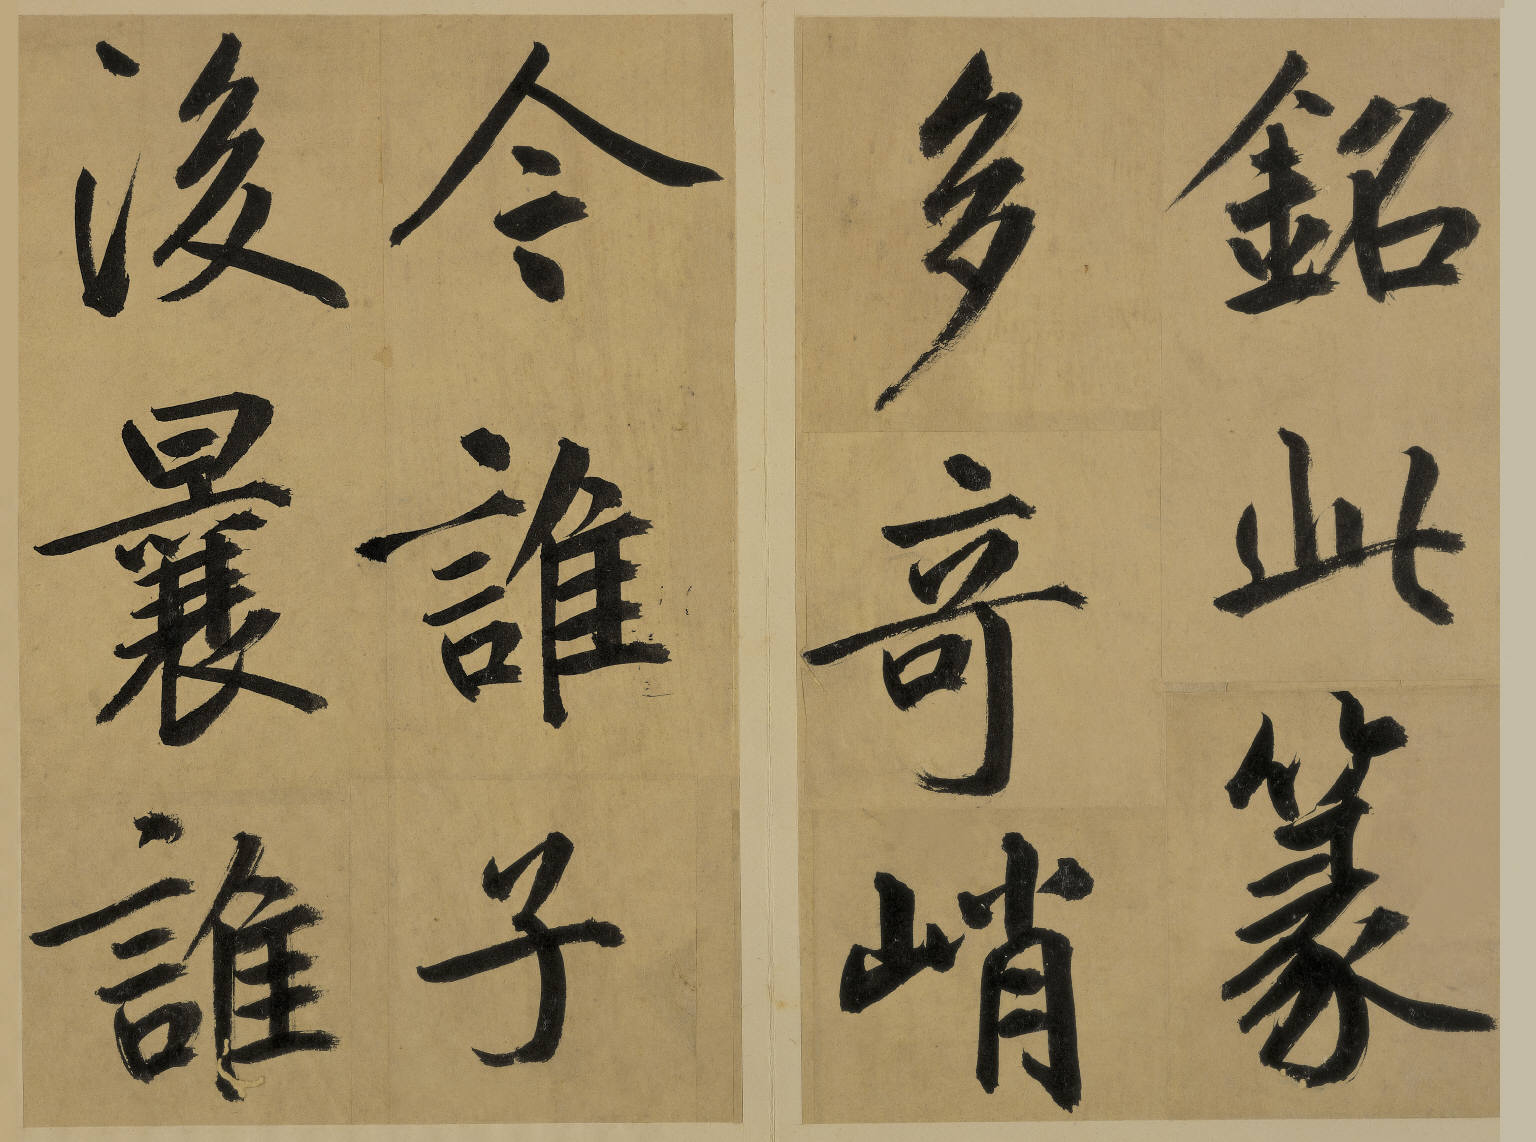 銘此篆
多奇峭
今誰子
後曩誰